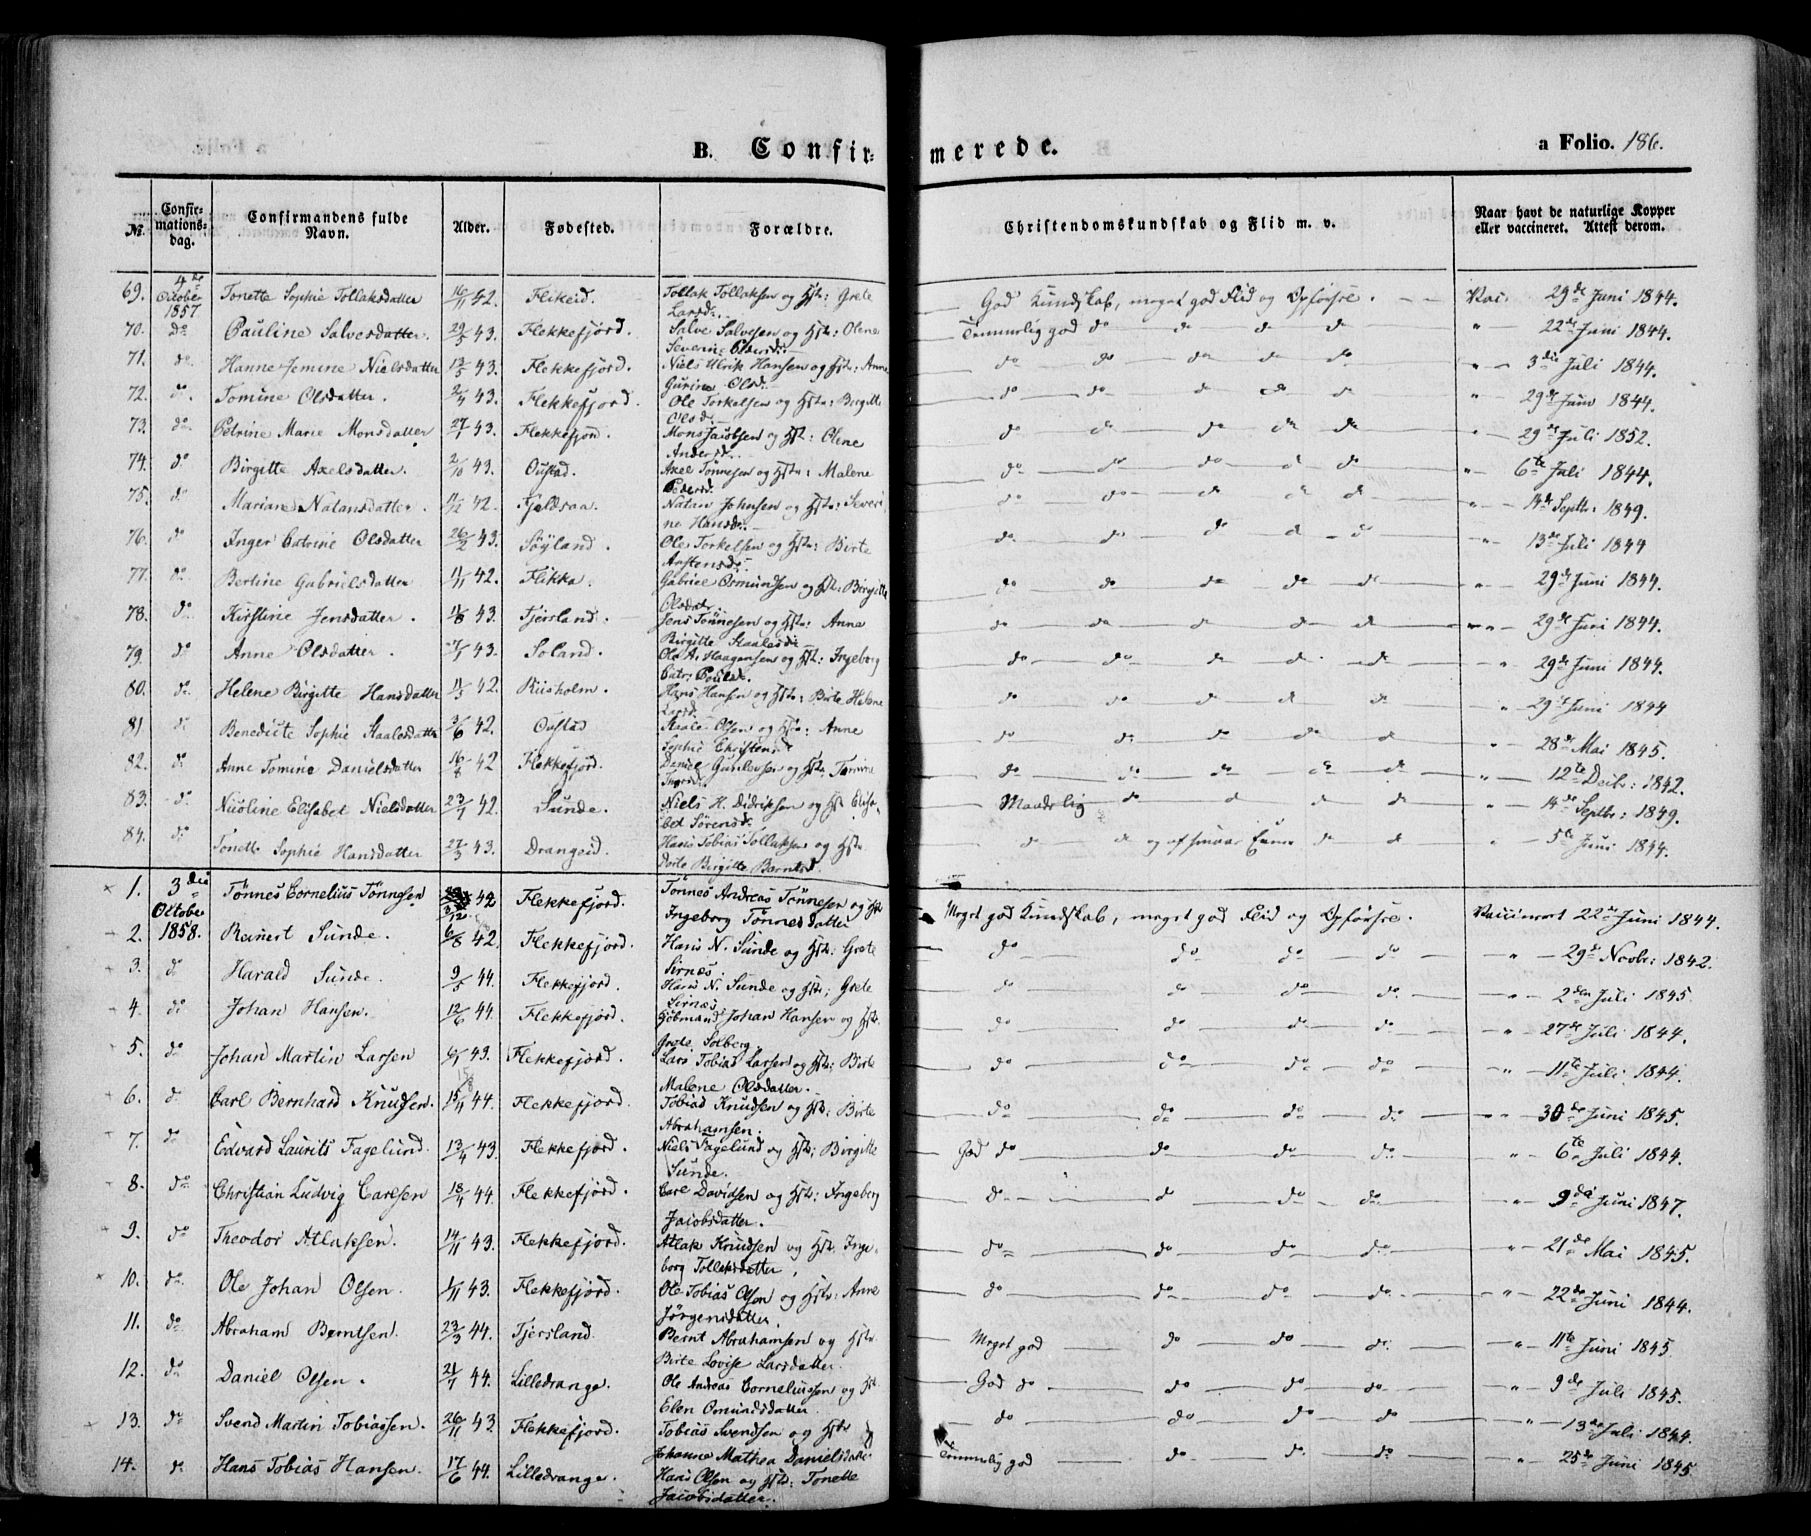 B. Confir-merede. a Folio. 186.
No. Confirmationsdag. Confirmandens fulde Navn. Alder. Fødested. Forældre. Christendomskundskab og Flid m. v. Naar havt de naturlige Kopper eller vaccineret. Attest derom.
69. 4de October 1857 Tonette Sophie Tollaksdatter 16/11 42. Flikeid. Tollak Tollaksen og Hstr: Grete Larsd. God Kundskab, meget god Flid og Opførsre. Vac. 29de Juni 1844.
70. do Pauline Salvesdatter 29/5 43. Flekkefjord. Salve Salvesen og Hstr: Olene Severine Pedersd. Temmelig god do do do do " 22de Juni 1844.
71. do. Hanne Jemine Nielsdatter 13/5 43. Flekkefjord. Niels Ulrik Hansen og Hstr: Anne Gurine Olsd. do do do do do " 3die Juli 1844.
72. do. Tomine Olsdatter. 2/4 43. Flekkefjord. Ole Torkelsen og Hstr: Birgitte Olsd. do do do do do " 29de Juni 1844.
73. do. Petrine Marie Monsdatter 27/1 43. Flekkefjord. Mons Jacobsen og Hstr: Olene Andersd. do do do do " 29de Juli 1852.
74. do Birgitte Axelsdatter. 2/10 43. Oustad. Axel Tønnesen og Hstr: Malene Pedersd. do do do do do " 6te Juli 1844.
75. do Mariane Natansdatter. 11/12 42. Fjeldsaa. Natan Johnsen og Hstr: Severine Hansd. do do do do do " 14de Septbr: 1849.
76. do Inger Catrine Olsdatter 26/2 43. Søyland. Ole Torkelsen og Hstr: Birte Arstensd. do do do d do " 13de Juli 1844
77. do Bertine Gabrielsdatter 11/11 42. Flikka. Gabriel Osmundsen og Hstr: Birgitte Olsdatr do do do do do " 29de Juni 1844.
78. do Kirstine Jensdatter. 11/8 43. Fjersland. Jens Tønnesen og Hstr: Anna Birgitte Staalesd do do do do do " 29de Juni 1844.
79. do Anne Olsdatter. 43. Soland. Ole A. Haagensen og Hstr: Ingeborg Catr: Poulsd. do do do do do " 29de Juni 1844.
80. do Helene Birgitte Hansdatter 11/5 42. Riisholm. Hans Hansen og Hstr: Birte Helene Larsd. do do do do do " 29de Juni 1844
81 do Benedicte Sophie Staalesdatter 3/6 42. Oustad Staale Olsen og Hstr: Anne Sophie Christensd. do do do do do " 28de Mai 1845.
82. do Anne Tomine Danielsdatter 16/8 42 Flekkefjord. Daniel Gunlevsen og Hstr. Tomine do do do do do " 12te Decbr: 1842.
83. do Nicoline Elisabet Nielsdatter 23/7 42. Sunde. Niels H. Didriksen og Hstr Elisabet Sørensd. Maadelig do do do do " 14de Septbr: 1849.
84. do Tonette Sophie Hansdatter 27/3 43. Drangeid. Hans Tobias Tollaksen og Hstr. Dorte Birgitte Berntsd. do do og af smaae Evner do do " 5te Juni 1844.
1. 3die October 1858. Tønnes Cornelius Tønnesen 42 Flekkefjord. Tønnes Andreas Tønnesen og Hstr Ingeborg Tønnesdatter Meget god Kundskab, meget god Flid og Opførsre. Vaccineret 22de Juni 1844.
2. Reinert Sunde. 6/8 42. Flekkefjord. Hans N. Sunde og Hstr: Grete Sirnæs. do do do do " 29de Novbr: 1842.
3. do Harald Sunde. 9/5 44. Flekkefjord. Hans N. Sunde og Hstr: Grete Sirnæs. do do do do " 2den Juli 1845.
4. do Johan Hansen. 12/6 44. Flekkefjord. Kjøbmand Johan Hansen og Hstr. Grete Solberg. do do do do " 27de Juli 1844.
5. do Johan Martin Larsen 43. Flekkefjord. Lars Tobias Larsen og Hstr: Birte Malene Olsdatter. do do do do " 11te Juli 1844.
6. do Carl Bernhard Knudsen. 15/4 44. Flekkefjord. Tobias Knudsen og Hstr: Birte Abrahamsen. do do do do " 30de Juni 1845.
7. do Edvard Laurits Fagelund. 13/4 43. Flekkefjord. Niels Fagelund og Hstr: Birgitte Sunde. God do do do do " 6te Juli 1844.
8. do Christian Ludvig Carlsen 18/4 44. Flekkefjord. Carl Davidsen og Hstr: Ingeborg Jacobsdatter. do do do do " 9de Juni 1847.
9. do Theodor Atlaksen. 14/11 43. Flekkefjord. Atlak Knudsen og Hstr. Ingeborg Tollaksdatter. do do do do " 21de Mai 1845.
10. do Ole Johan Olsen. 1/11 43. Flekkefjord. Ole Tobias Olsen og Hstr: Anne Jørgensdatter. do do do do " 22de Juni 1844.
11. do Abraham Berntsen. 23/3 44. Fjersland. Bernt Abrahamsen og Hstr. Birte Lovise Larsdatter. Meget god do do do " 11te Juni 1845.
12. do Daniel Olsen. 21/7 44. Lilledrange. Ole Andreas Corneliussen og Hstr Elen Omundsdatter. God do do do do " 9de Juli 1845.
13. do Svend Martin Tobiassen. 26/11 43. Flekkefjord. Tobias Svendsen og Hstr Johanne Mathea Danielsdatter do do do do " 13de Juli 1844.
14. do Hans Tobias Hansen. 17/6 44. Lilledrange. Hans Olsen og Hstr: Tonette Jacobsdatter. Temmelig god do do do " 25de Juni 1845